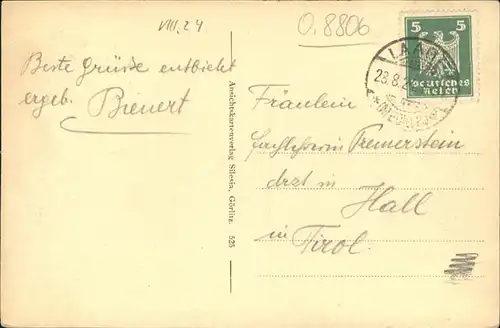 VIII.24
O.8806
Beste Grüsse entbietet
ergeb. Bienert
Ansichtskartenverlag Silesia, Görlitz. 525
5 5
Deutsches
Reich
LAABN
23.8.2
Fräulein
Fachlehrerin Premerstein
drzt in
Hall
in Tirol.